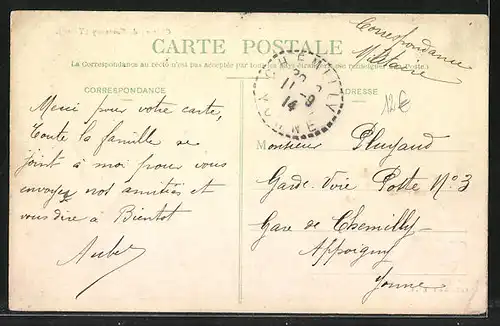 CARTE POSTALE
La Correspondance au recto n'est pas acceptée par tous les pays étrangers (se renseigner à la Poste.)
Correspondance
Militaire
CORRESPONDANCE
ADRESSE
CHEMILLY
YONNE
11-9
14
12€
Merci pour votre carte,
Toute la famille se
joint à moi pour vous
envoyer nos amitiés et
vous dire à Bientot
Aubel
Monsieur Pluyaud
Garde-Voie Poste No 3
Gare de Chemilly-
Appoigny
Yonne